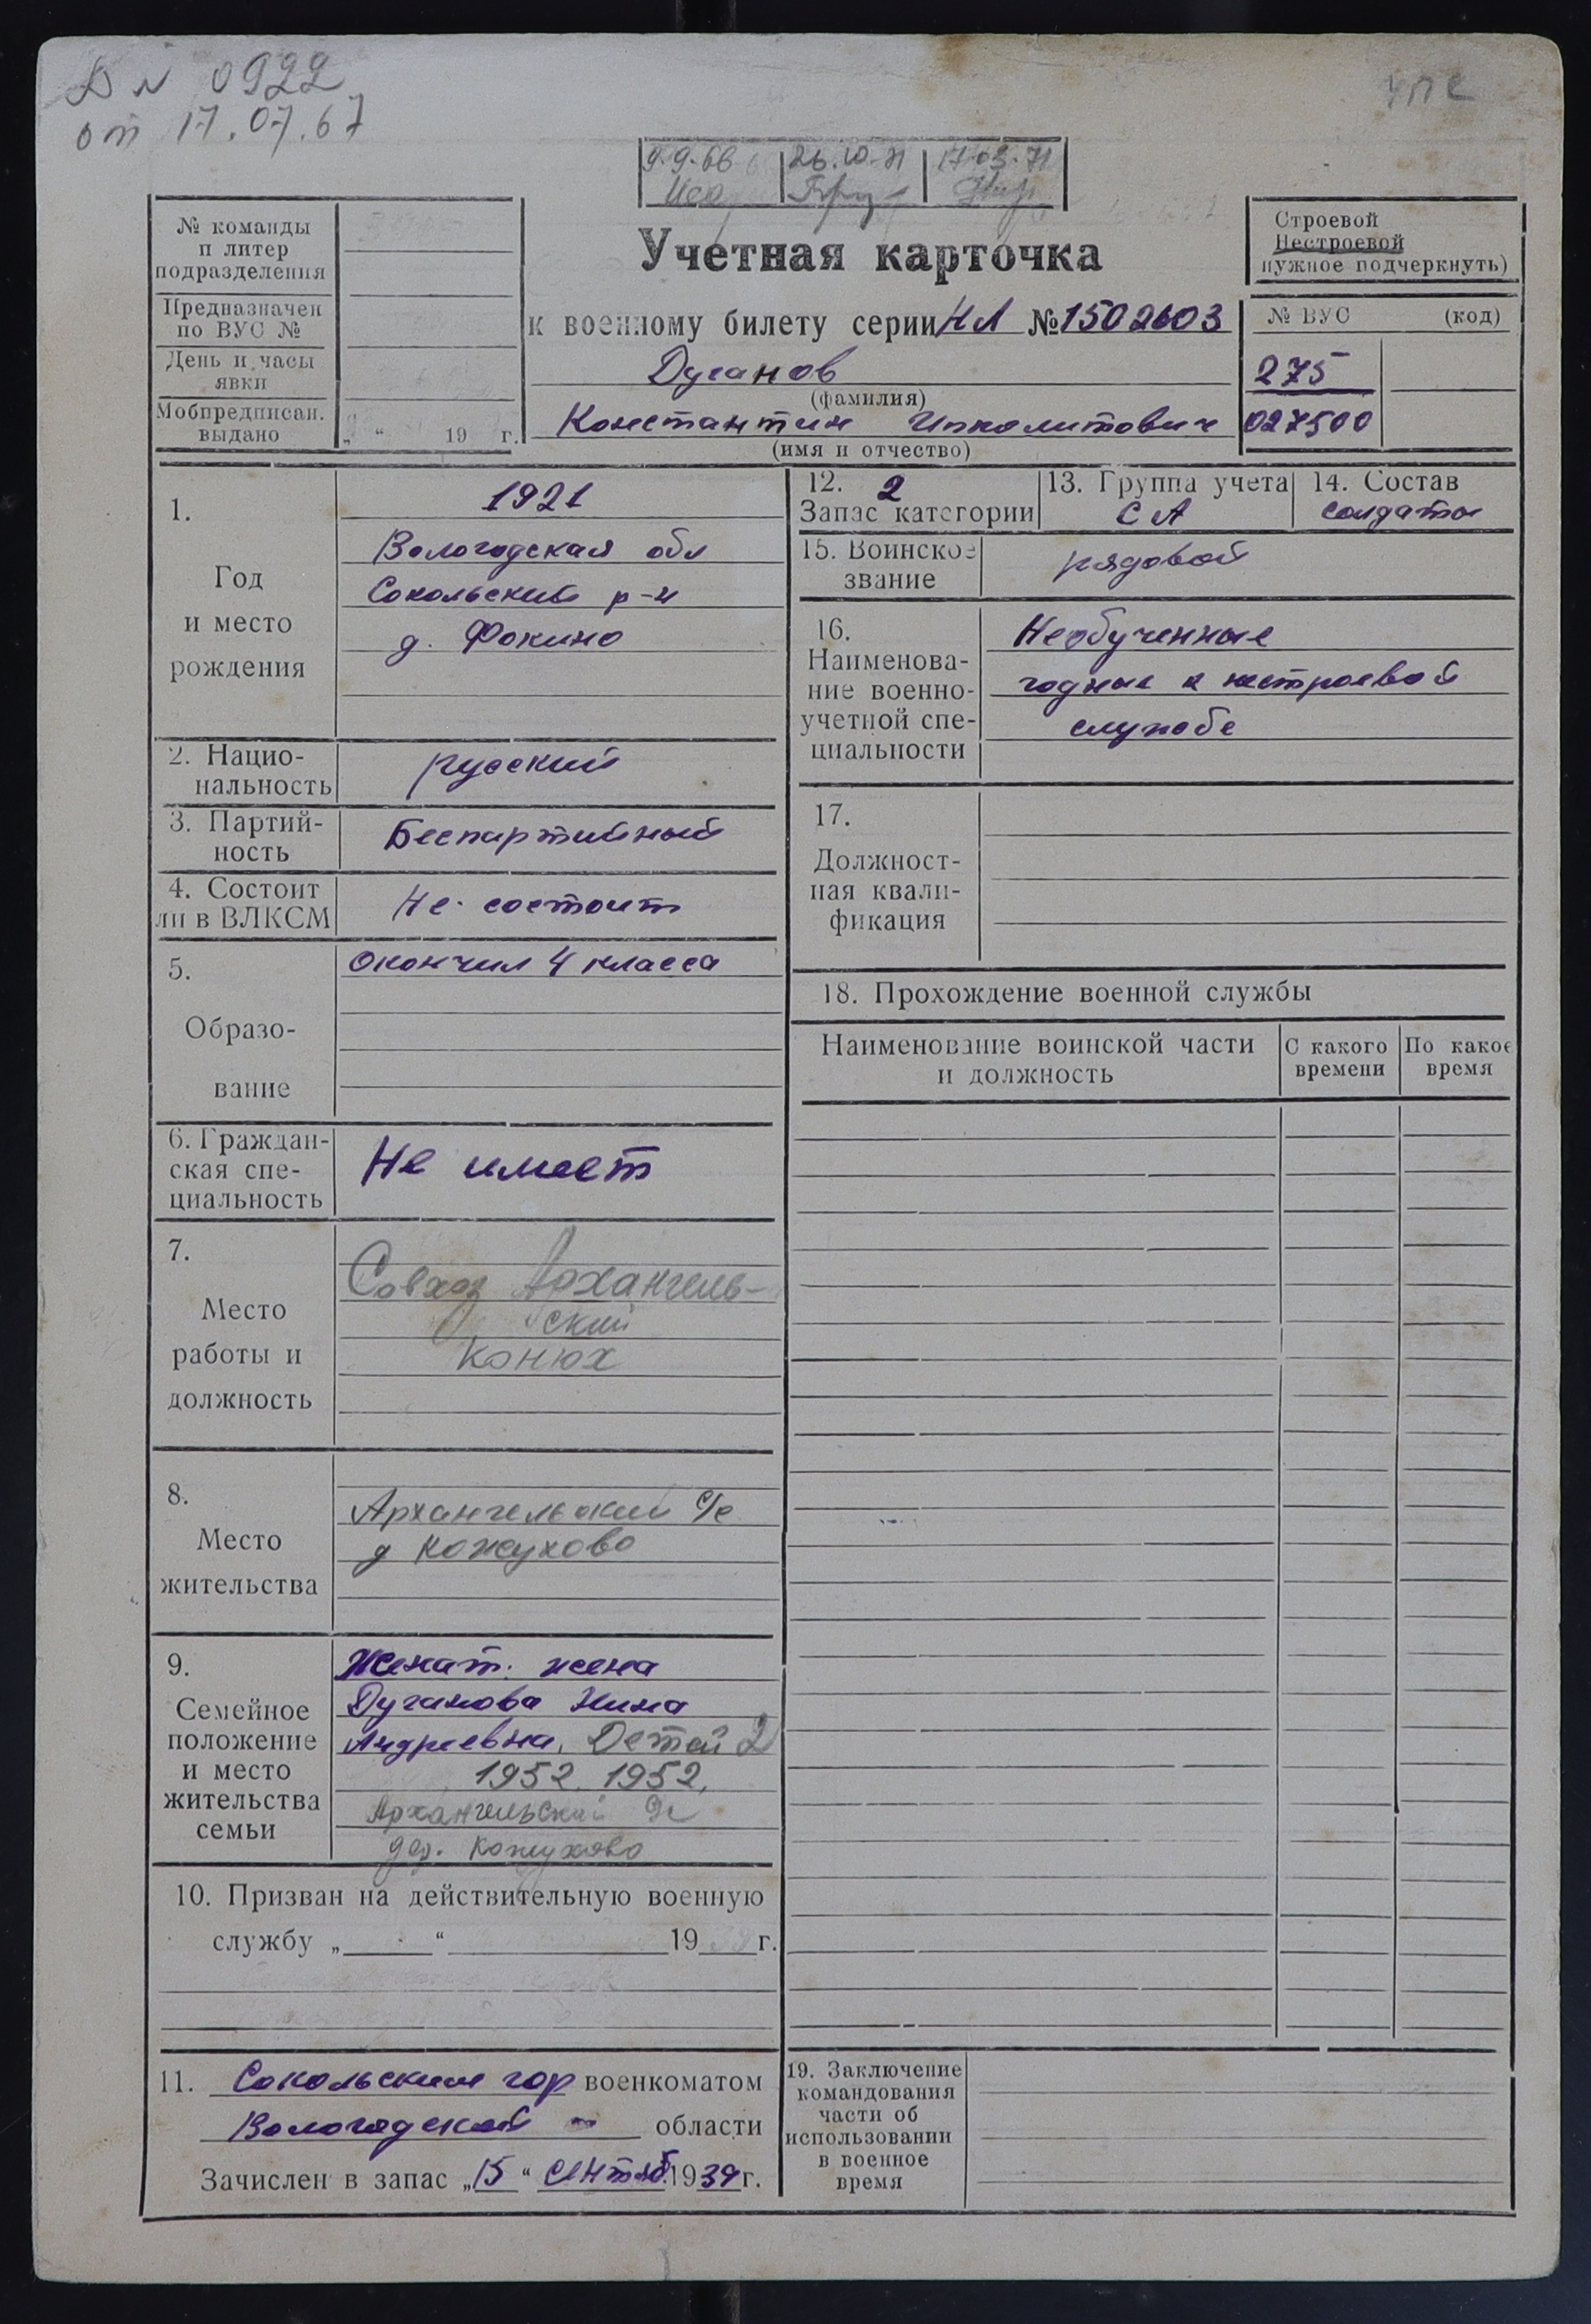 D N 0922
от 17.07.67
УПС
9.9.66 26.10.71 17.03.71
№ команды
п литер
подразделения
Предназначен
по ВУС №
День и часы
явки
Мобпредписан.
выдано „ “ 19 г.
Учетная карточка
к военному билету серии НЛ № 1502603
Дуганов
(фамилия)
Константин Ипполитович
(имя и отчество)
Строевой
Нестроевой
нужное подчеркнуть)
№ ВУС (код)
275
027500
1.
Год
и место
рождения
1921
Вологодская обл
Сокольский р-н
д. Фокино
2. Нацио-
нальность
русский
3. Партий-
ность
Беспартийный
4. Состоит
ли в ВЛКСМ
Не состоит
5.
Образо-
вание
Окончил 4 класса
6. Граждан-
ская спе-
циальность
Не имеет
7.
Место
работы и
должность
Совхоз Архангель-
ский
конюх
8.
Место
жительства
Архангельский с/с
д Кожухово
9.
Семейное
положение
и место
жительства
семьи
Женат. жена
Дуганова Нина
Андреевна. Детей 2
1952. 1952.
Архангельский с/с
дер. Кожухово
10. Призван на действительную военную
службу „ “ 19 г.
11. Сокольским гор военкоматом
Вологодской области
Зачислен в запас „15“ сентяб. 1939 г.
12. 2
Запас категории
13. Группа учета
СА
14. Состав
солдаты
15. Воинское
звание
рядовой
16.
Наименова-
ние военно-
учетной спе-
циальности
Необученные
годные к нестроевой
службе
17.
Должност-
ная квали-
фикация
18. Прохождение военной службы
Наименование воинской части
и должность
С какого
времени
По какое
время
19. Заключение
командования
части об
использовании
в военное
время